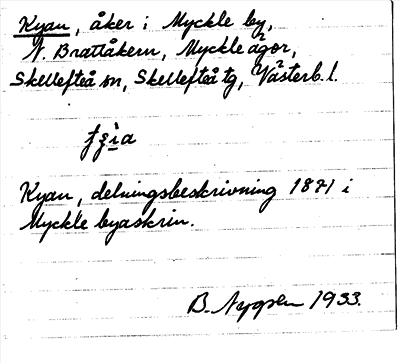 Kyan, åker i Myckle by,
N. Brattåkern, Myckle ägor,
Skellefteå sn, Skellefteå tg, Västerb. l.
Kyan, delningsbeskrivning 1871 i
Myckle byaskrin.
B. Nygren 1933.